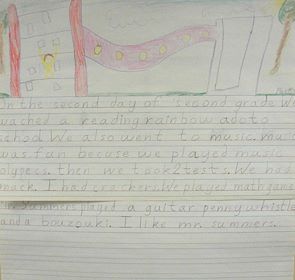 On the second day of second grade we
wached a reading rainbow adoto
school. We also went to music. music
was fun becuse we played music
olypecs. then we took 2 tests. We had
snack. I had crackers. We played math game
mr. summers played a guitar, pennywhistle
and a bouzouki. I like mr. summers.